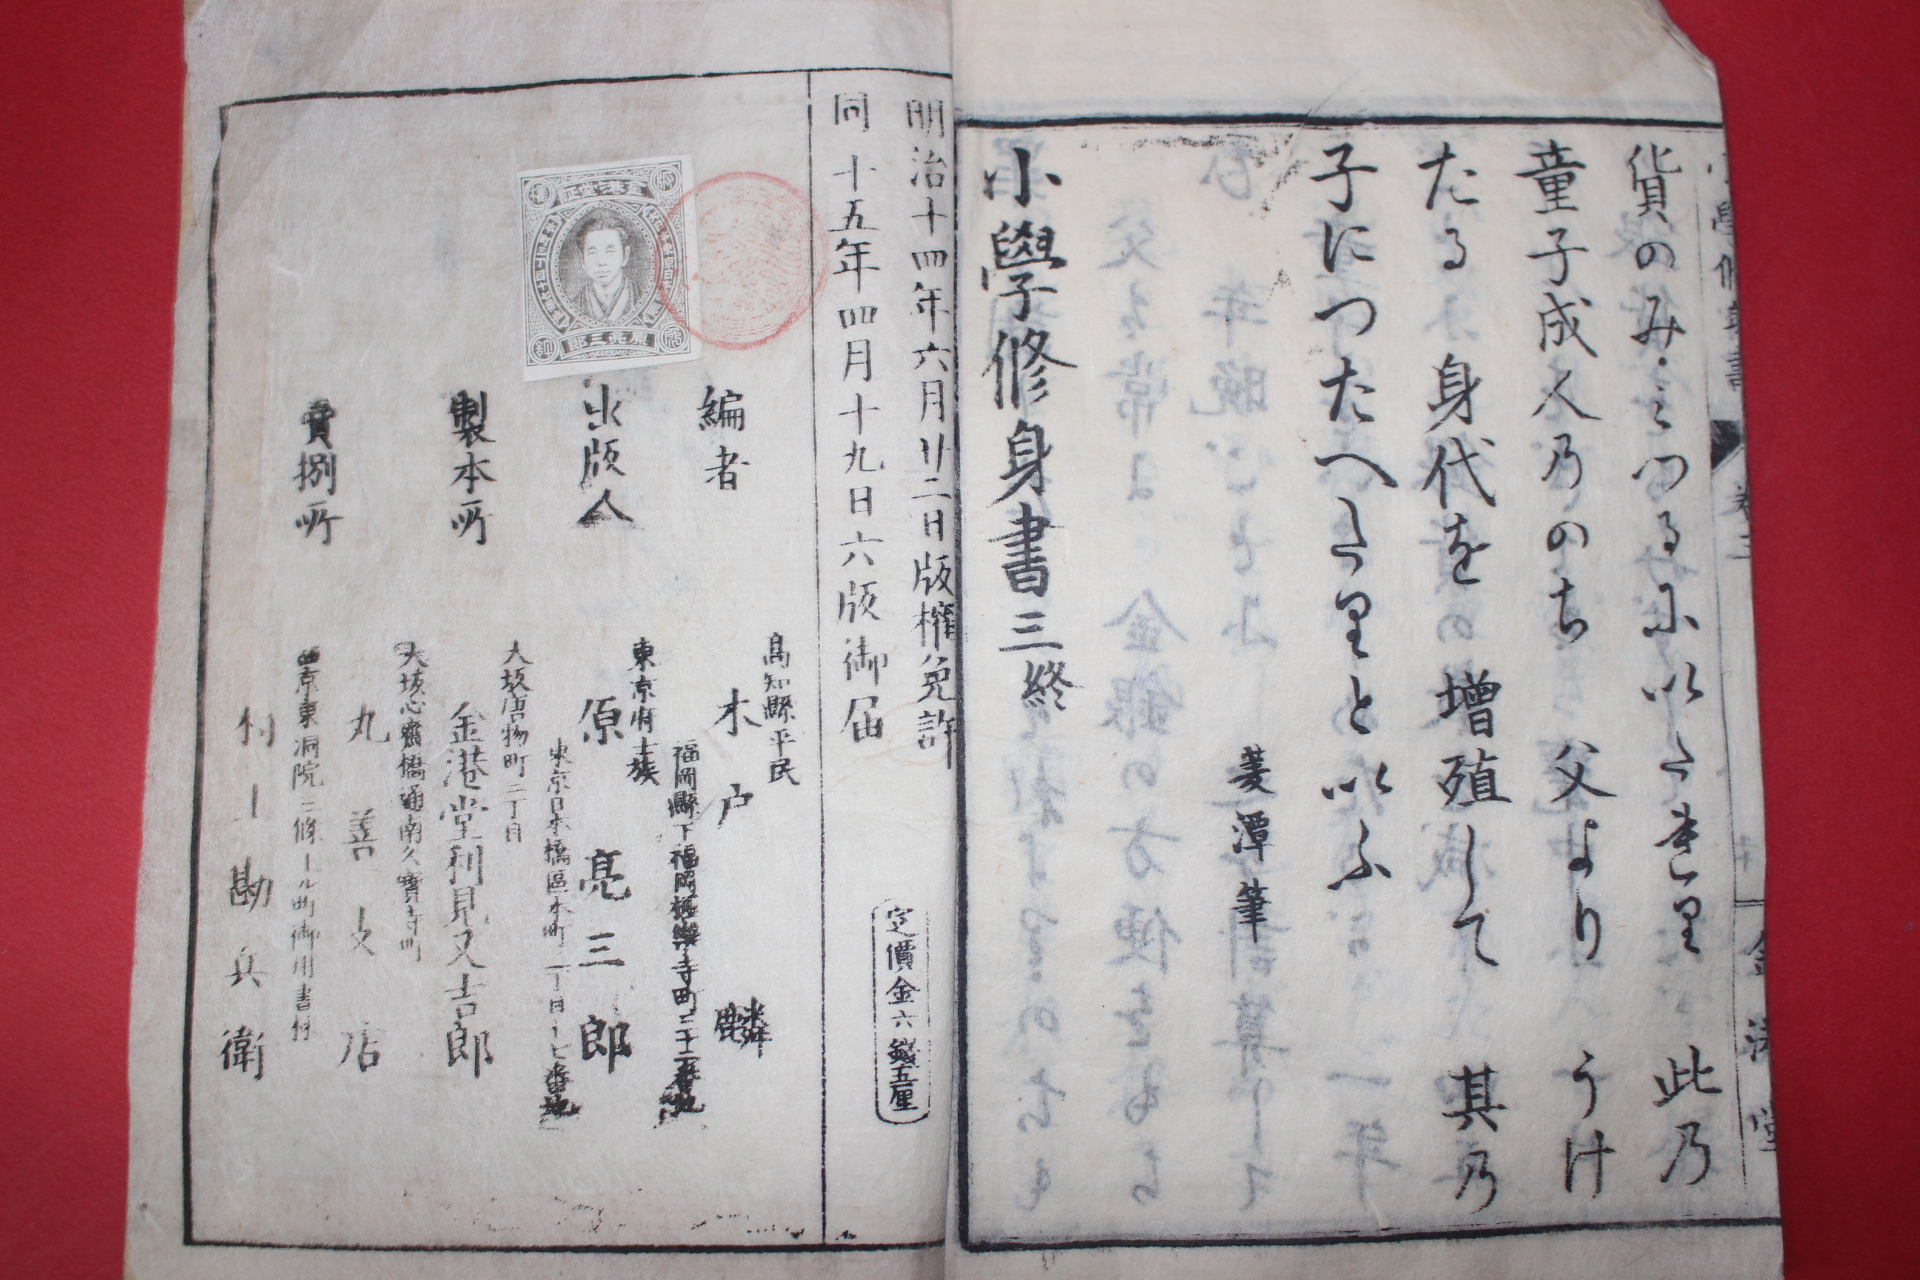 貨のみ、みつるに以たきり 此乃
童子成人乃のち 父より うけ
たる 身代を 増殖して 其乃
子につたへたりと以ふ
菱潭筆
小學修身書三終
明治十四年六月廿二日版權免許
同 十五年四月十九日六版御届
定價金六錢五厘
編者
高知縣平民
木戸麟
出版人
東京府士族
福岡縣下福岡極樂寺町二十二番地
原亮三郎
東京日本橋區本町
製本所
大坂唐物町二丁目
金港堂利見又吉郎
賣捌所
大坂心齋橋通南久寶寺町
丸善支店
西京東洞院三條上ル町御用書林
村上勘兵衛
原亮三郎